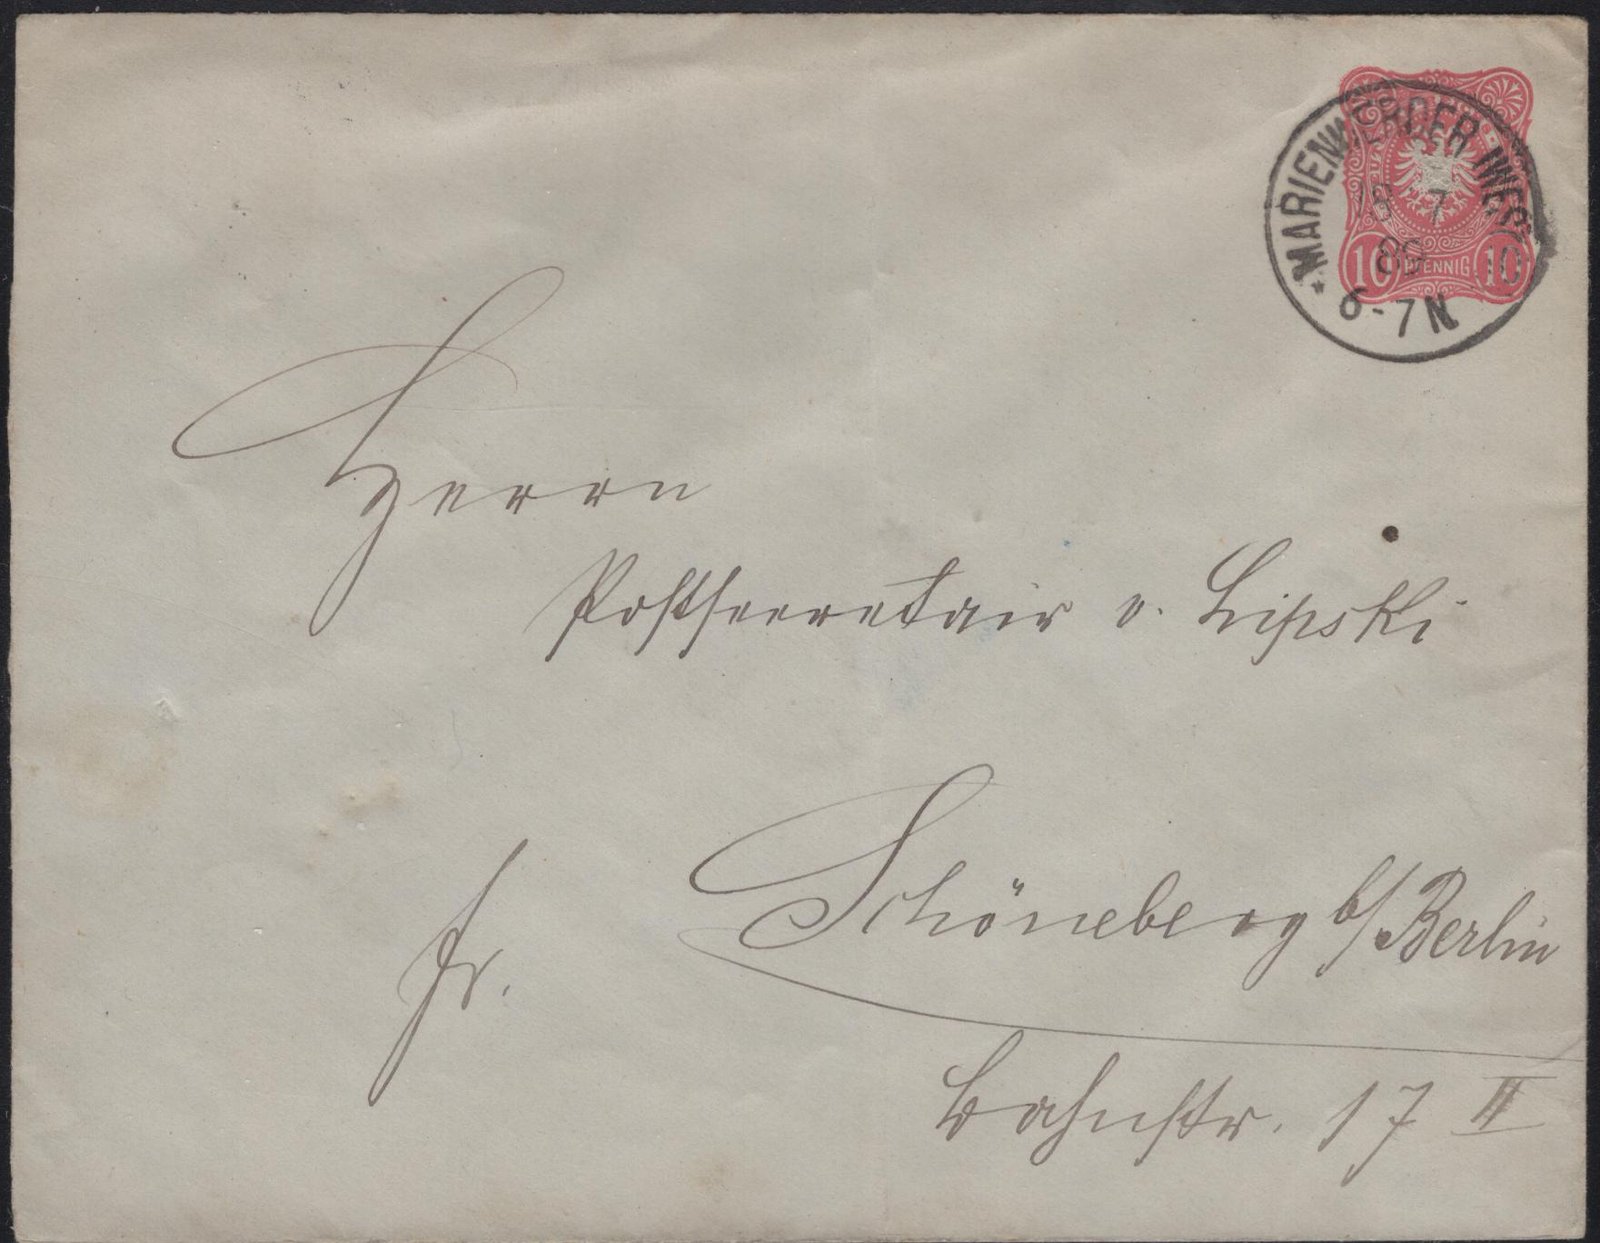 * MARIENWERDER WES
18 7
89
6-7N
10 PFENNIG 10
Herrn
Postsecretair v. Lipski
Schöneberg b/Berlin
fr.
Bahnstr. 17 II